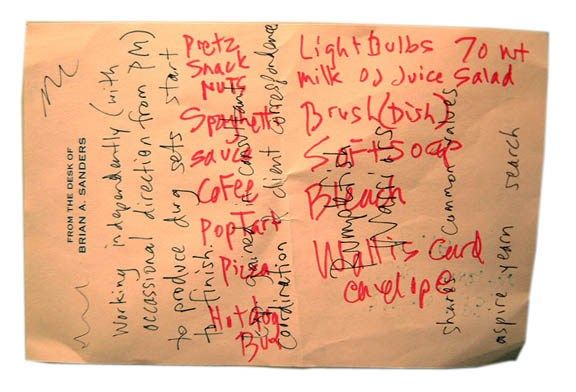 FROM THE DESK OF
BRIAN A. SANDERS
Working independently (with
occassional direction from PM)
to produce dwg sets start
to finish.
coordination & client correspondence
shares common values
aspire yearn search
Pretz
Snack
Nuts
Spaghetti
sauce
Coffee
PopTart
Pizza
Hotdog
Bun
Light Bulbs 70 wt
milk OJ Juice Salad
Brush (Dish)
Soft Soap
Bleach
Wallis Card
envelope